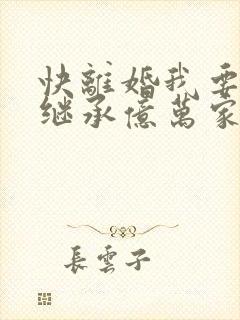 快離婚我要
继承億萬家
長雲子